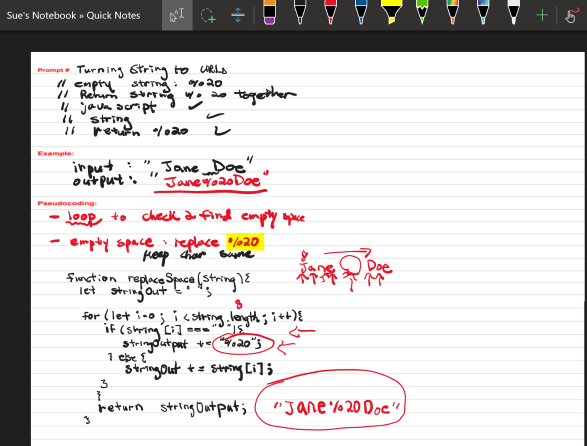 Sue's Notebook » Quick Notes
Prompt # Turning String to URLs
// empty string : %20
// Return string w. 20 together
// java script ✓
// string ✓
// return %20 ✓
Example:
input : "Jane Doe"
output : "Jane%20Doe"
Pseudocoding:
- loop to check & find empty space
- empty space : replace %20
keep char same
Jane Doe
function replaceSpace(string){
let stringOut = " ";
8
for (let i=0; i < string.length; i++){
if (string[i] === " "){
stringOutput += "%20";
} else {
stringOut += string[i];
}
}
return stringOutput;
"Jane%20Doe"
}